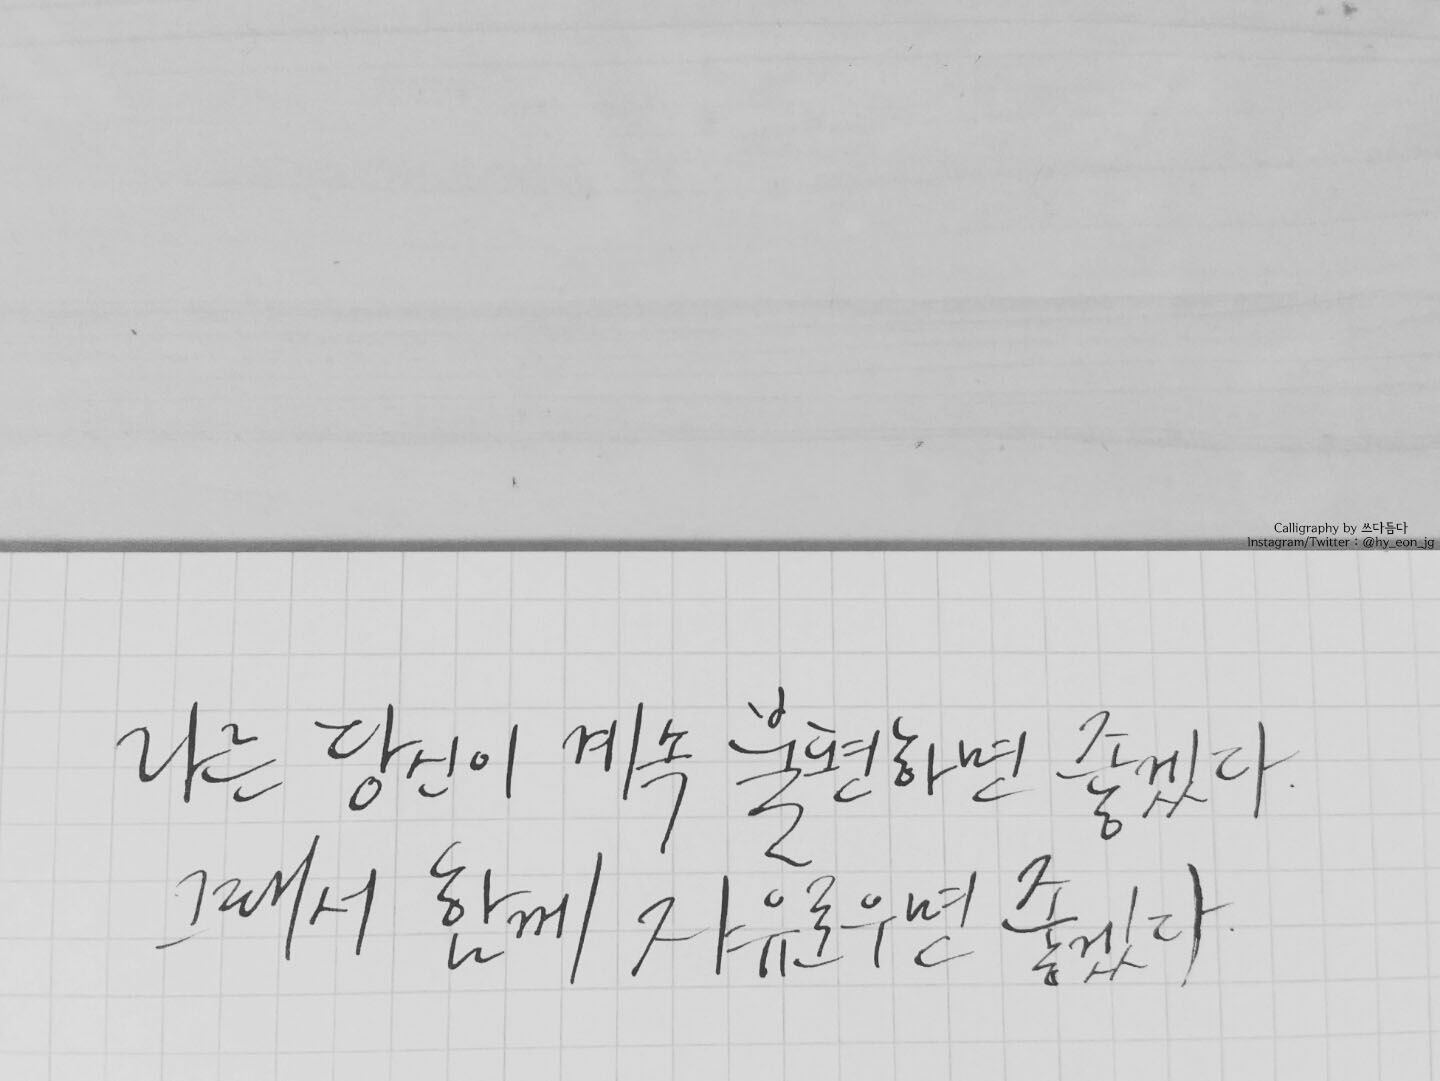 Calligraphy by 쓰다듬다
Instagram/Twitter : @hy_eon_jg
나는 당신이 계속 불편하면 좋겠다.
그래서 함께 자유로우면 좋겠다.